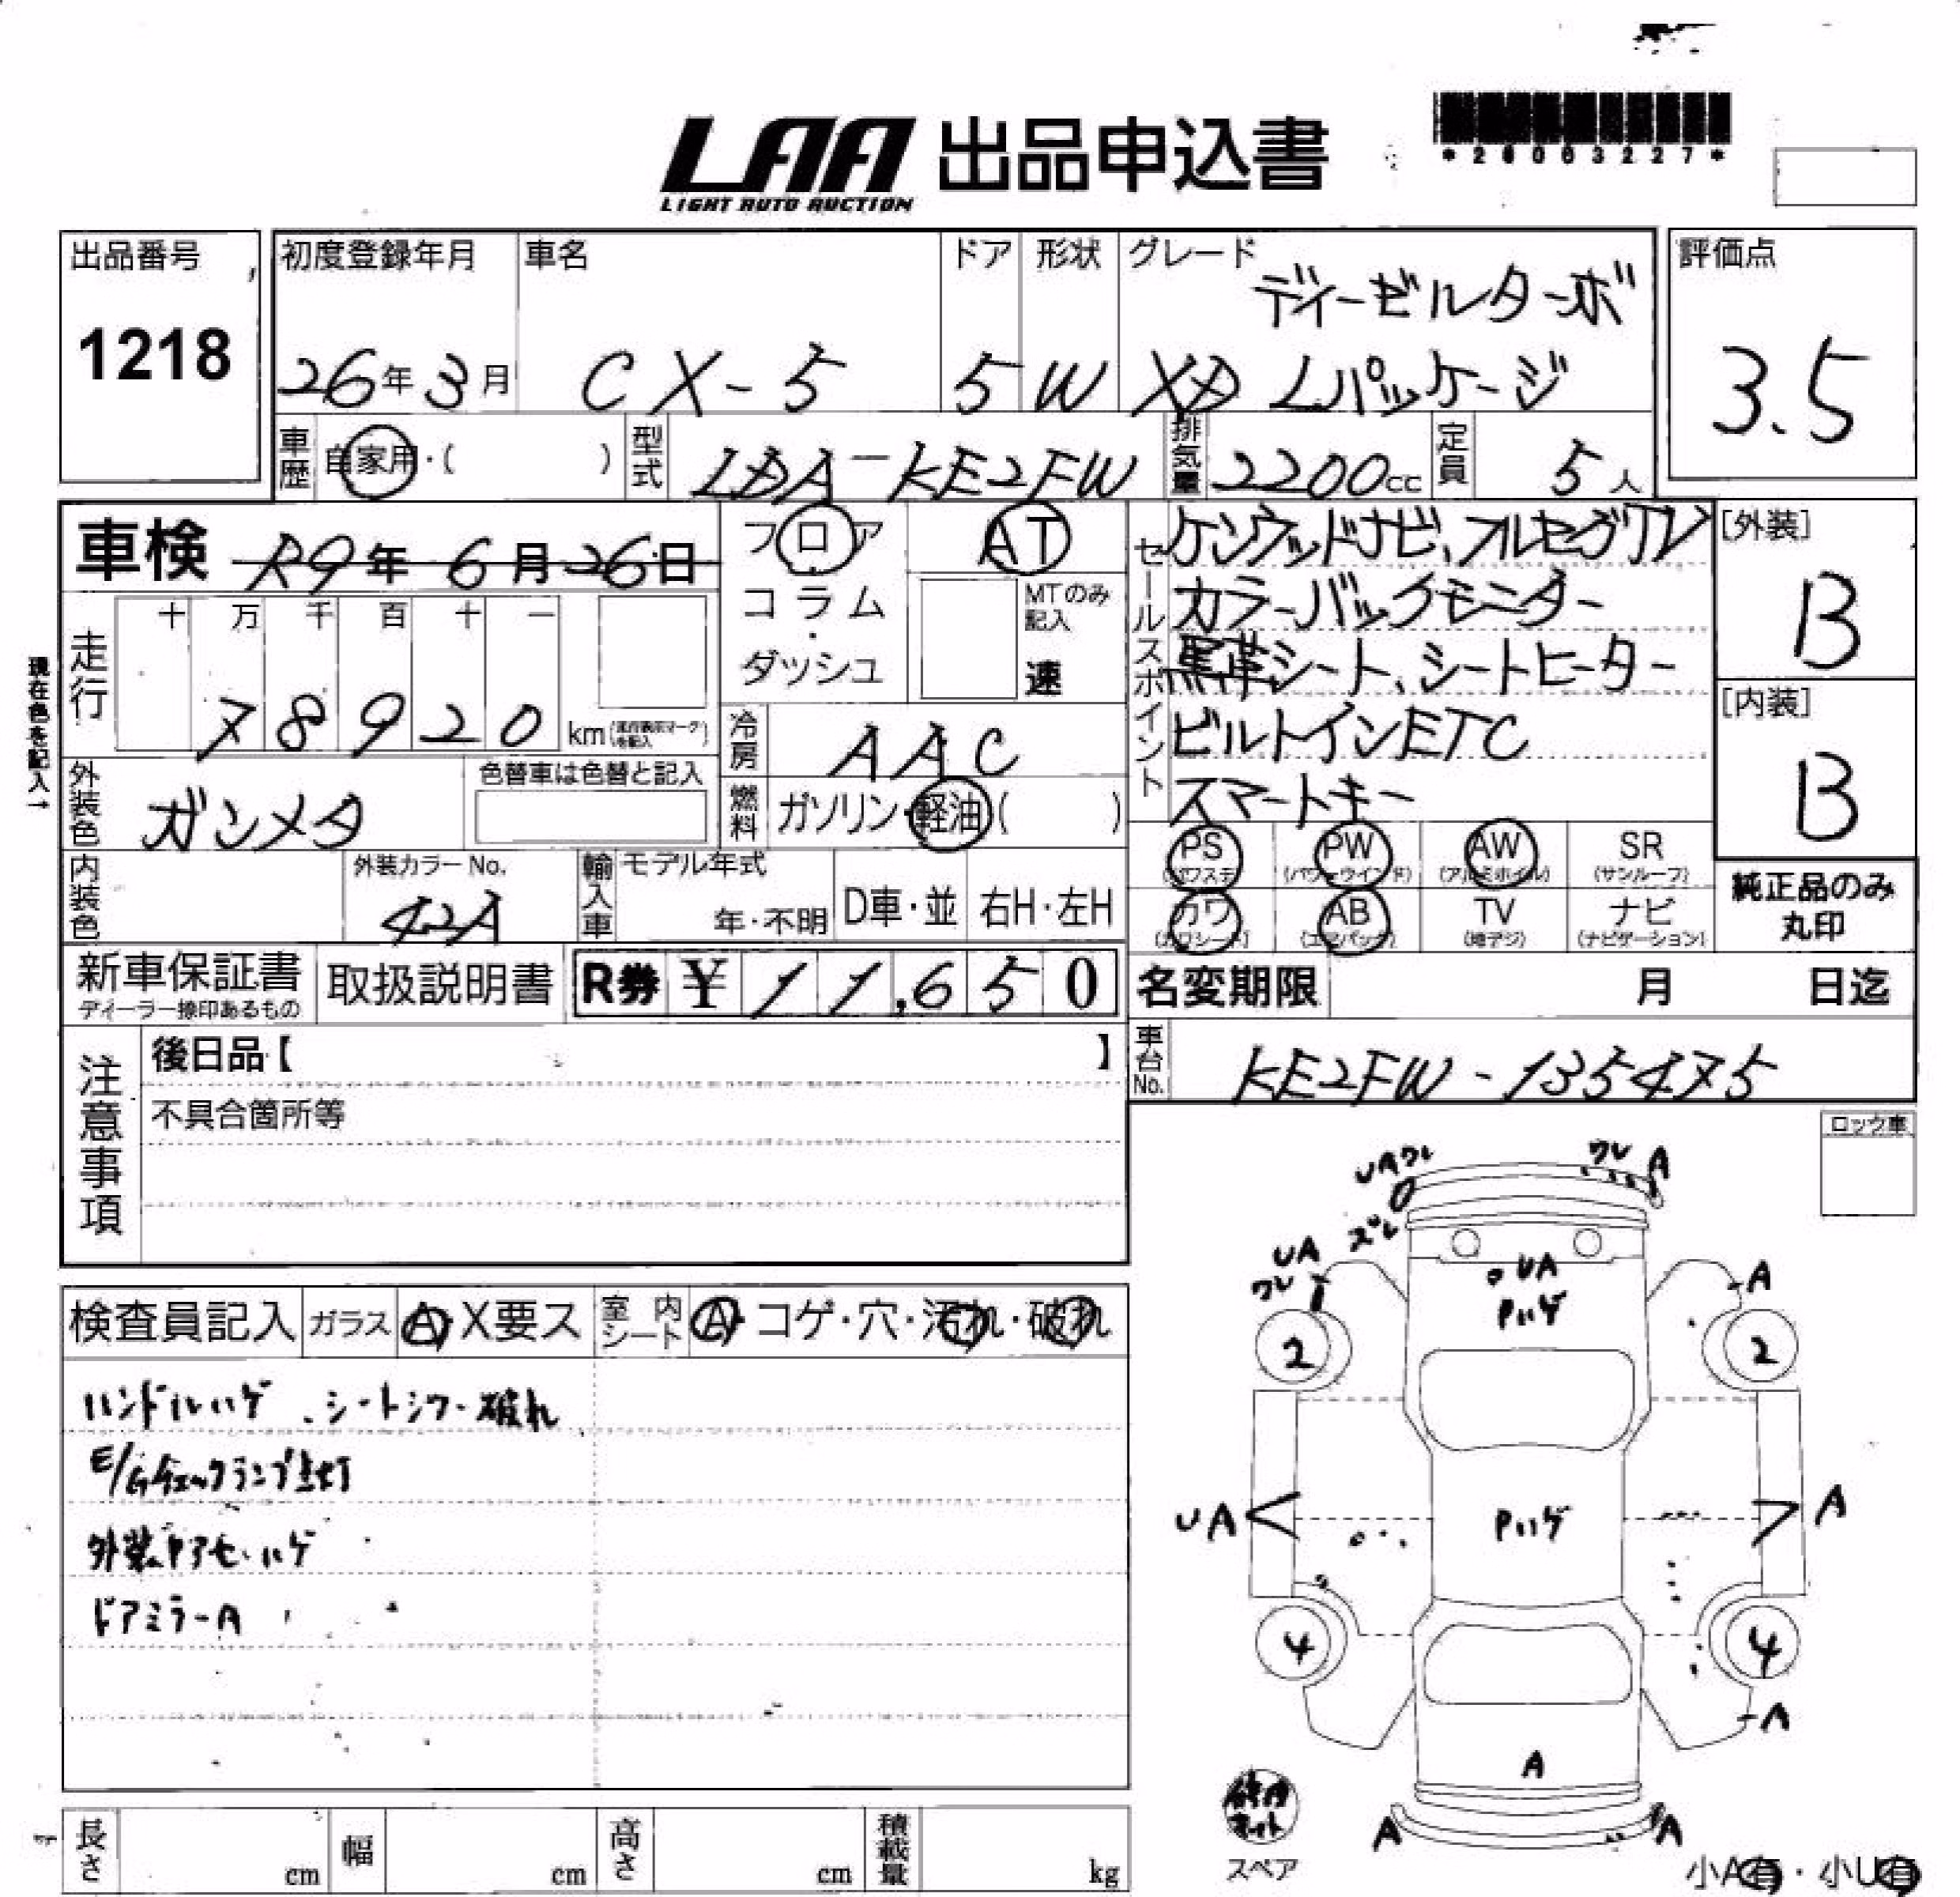 LAA 出品申込書
LIGHT AUTO AUCTION
*26003227*
出品番号
1218
初度登録年月
26年3月
車名
CX-5
ドア
5
形状
W
グレード
ディーゼルターボ
XD Lパッケージ
評価点
3.5
車歴
自家用・( )
型式
LDA-KE2FW
排気量
2200cc
定員
5人
車検 R9年6月26日
現在色を記入→
走行
十 万 千 百 十 一
78920 km
フロア
コラム
・
ダッシュ
AT
MTのみ記入
速
冷房
AAC
燃料
ガソリン・軽油( )
セールスポイント
ケンウッドナビ、フルセグTV
カラーバックモニター
黒革シート、シートヒーター
ビルトインETC
スマートキー
[外装]
B
[内装]
B
外装色
ガンメタ
色替車は色替と記入
内装色
外装カラーNo.
42A
輸入車
モデル年式
年・不明
D車・並
右H・左H
PS
(パワステ)
PW
(パワーウインド)
AW
(アルミホイル)
SR
(サンルーフ)
カワ
(カワシート)
AB
(エアバッグ)
TV
(地デジ)
ナビ
(ナビゲーション)
純正品のみ
丸印
新車保証書
ディーラー捺印あるもの
取扱説明書
R券 ¥11,650
名変期限 月 日迄
注意事項
後日品【 】
不具合箇所等
車台No.
KE2FW-135475
ロック車
検査員記入
ガラス
A・X要ス
室内シート
A・コゲ・穴・汚れ・破れ
ハンドルハゲ、シートシワ・破れ
E/Gチェックランプ点灯
外装ヤアセ・ハゲ
ドアミラーA
UAワレ
ワレ A
ズレ
UA
ワレ
UA
Pハゲ
A
2
2
UA
Pハゲ
A
4
4
A
A
A
A
修理キット
スペア
小A有・小U有
長さ
cm
幅
cm
高さ
cm
積載量
kg